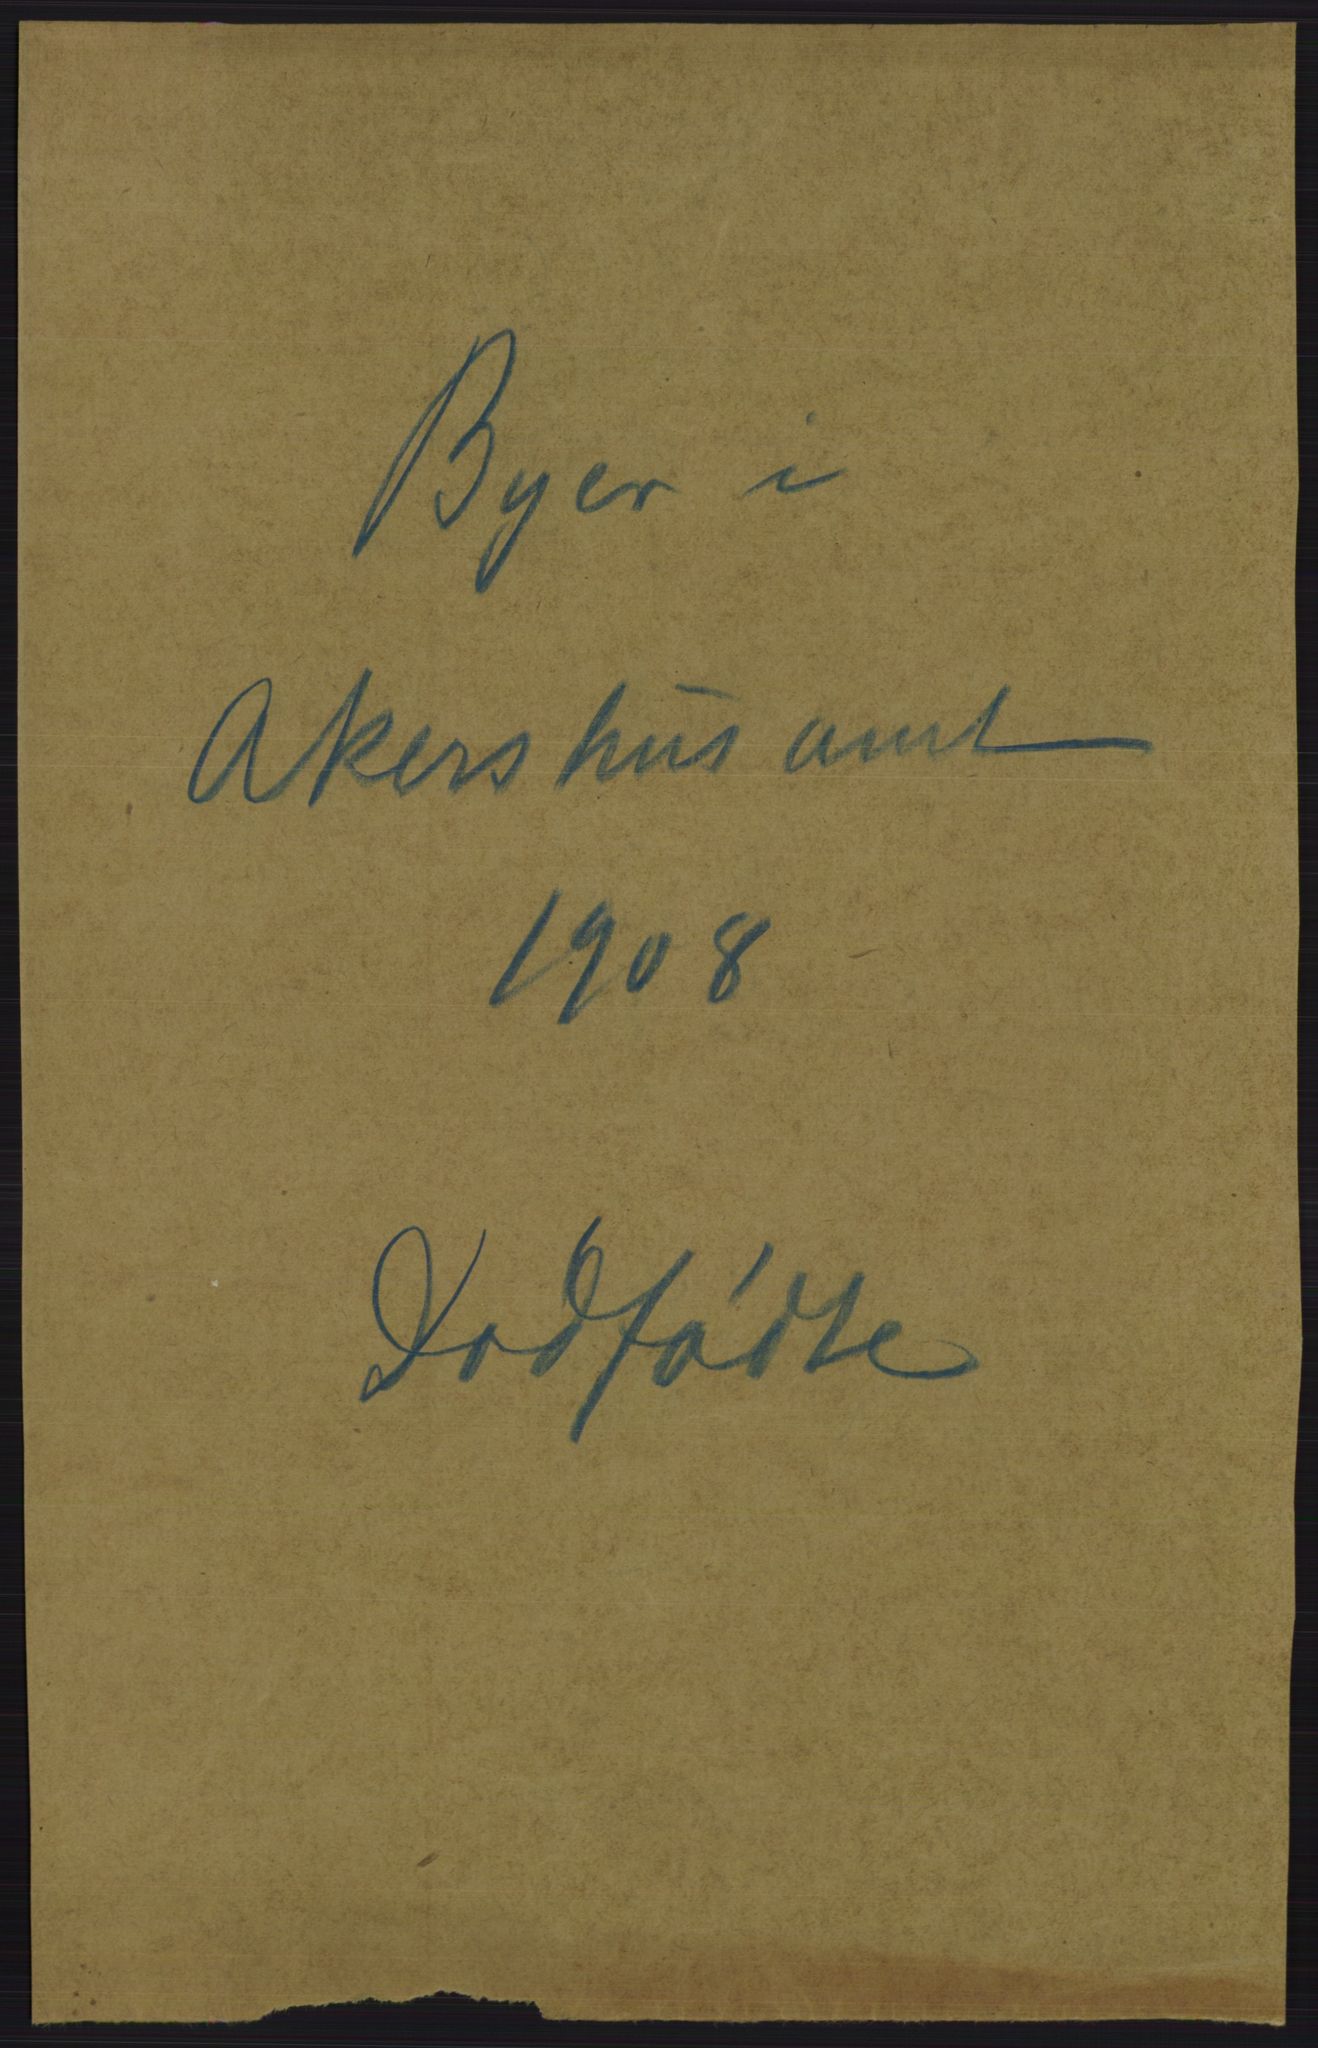 Byer i
Akershus amt
1908
Dødfødte